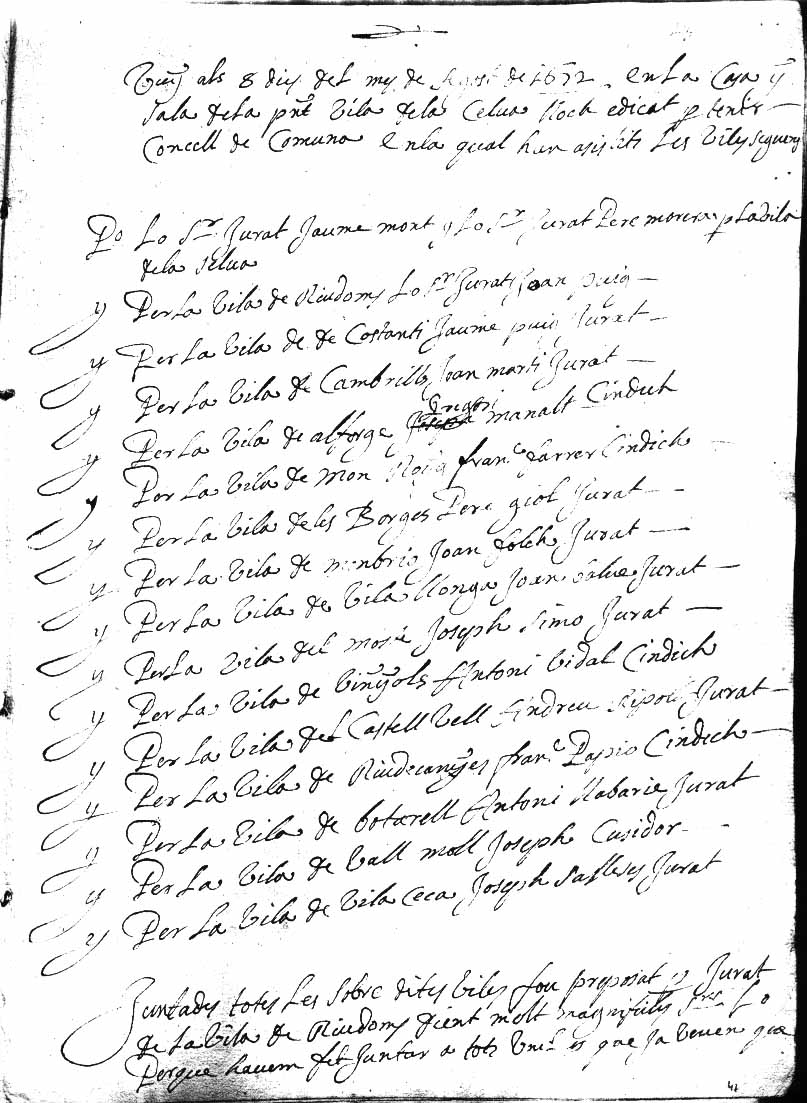 Vuy als 8 dies del mes de Agost de 1672. en La Casa y
Sala dela pnt Vila dela Celva Noch edicat p tenir
Concell de Comuna Enla qual han asistits Les Viles seguens
Po Lo Sr Jurat Jaume mont y Lo Sr Jurat Pere morera p La vila
dela selva
y Per La Vila de Riudoms Lo Sr Jurat Joan puig
y Per La Vila de de Costanti Jaume puig Jurat
y Per La Vila de Cambrills Joan marti Jurat
y Per La Vila de alforge Gregori manalt Cindich
y Per La Vila de Mon Roig franc farrer Cindich
y Per La Vila deles Borges Pere giol Jurat
y Per La Vila de monbrio Joan folch Jurat
y Per La Vila de Vila llonga Joan salve Jurat
y Per La Vila del Joseph simo Jurat
y Per La Vila de Vinyols Antoni Vidal Cindich
y Per La Vila del Castell Vell Andreu Ripoll Jurat
y Per La Vila de Riudecanyes franc Papio Cindich
y Per La Vila de botarell Antoni Nabarie Jurat
y Per La Vila de Vall moll Joseph Cusidor
y Per La Vila de Vila ceca Joseph Jurat
Juntades totes Les sobre dites Viles fou preposat p Jurat
de La Vila de Riudoms dient molt magnifichs Srs Lo
Perque havem fet Juntar a tots Vms es que Ja veuen que